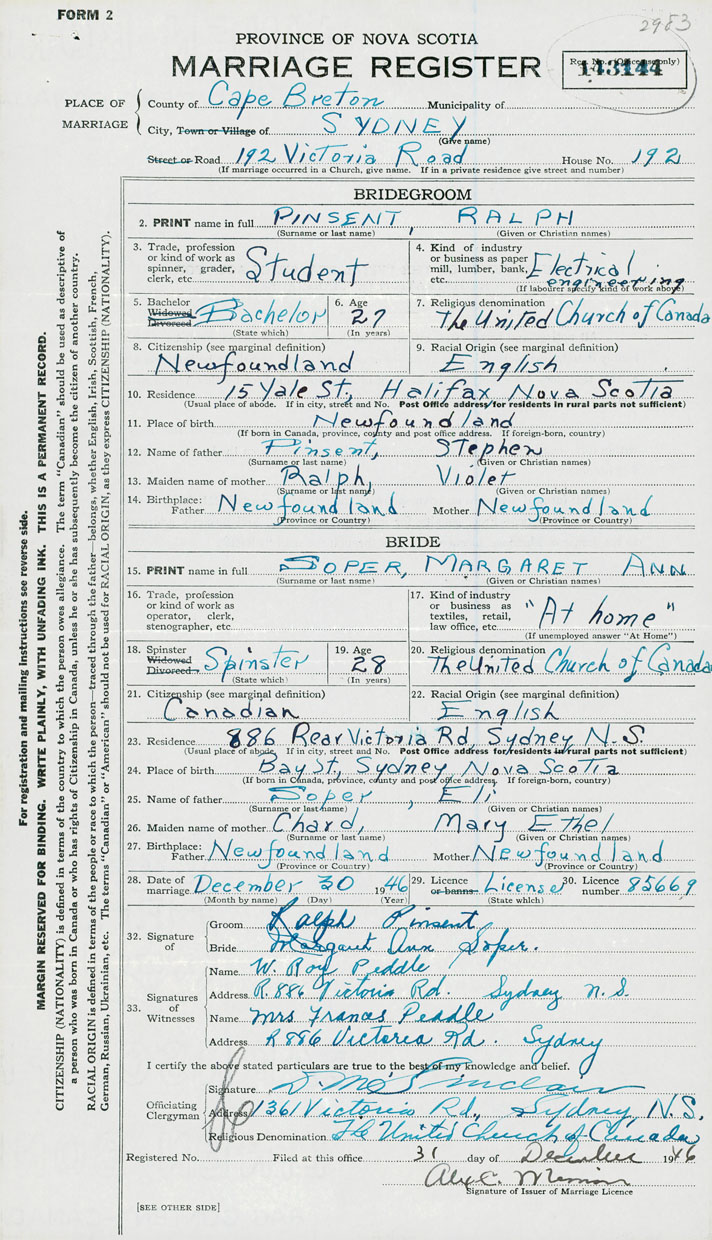 FORM 2
2983
PROVINCE OF NOVA SCOTIA
MARRIAGE REGISTER
Reg. No. (Office use only)
143144
PLACE OF MARRIAGE
County of Cape Breton Municipality of
City, Town or Village of SYDNEY
(Give name)
Street or Road 192 Victoria Road House No. 192
(If marriage occurred in a Church, give name. If in a private residence give street and number)
BRIDEGROOM
2. PRINT name in full PINSENT, RALPH
(Surname or last name) (Given or Christian names)
3. Trade, profession or kind of work as spinner, grader, clerk, etc. Student
4. Kind of industry or business as paper mill, lumber, bank, etc. Electrical engineering
(If labourer specify kind of work above)
5. Bachelor Widowed Divorced Bachelor
(State which)
6. Age 27
(In years)
7. Religious denomination
The United Church of Canada
8. Citizenship (see marginal definition)
Newfoundland
9. Racial Origin (see marginal definition)
English
10. Residence 15 Yale St., Halifax Nova Scotia
(Usual place of abode. If in city, street and No. Post Office address for residents in rural parts not sufficient)
11. Place of birth Newfoundland
(If born in Canada, province, county and post office address. If foreign-born, country)
12. Name of father Pinsent, Stephen
(Surname or last name) (Given or Christian names)
13. Maiden name of mother Ralph, Violet
(Surname or last name) (Given or Christian names)
14. Birthplace: Father Newfoundland Mother Newfoundland
(Province or Country) (Province or Country)
BRIDE
15. PRINT name in full SOPER, MARGARET ANN
(Surname or last name) (Given or Christian names)
16. Trade, profession or kind of work as operator, clerk, stenographer, etc.
17. Kind of industry or business as textiles, retail, law office, etc. "At home"
(If unemployed answer "At Home")
18. Spinster Widowed Divorced Spinster
(State which)
19. Age 28
(In years)
20. Religious denomination
The United Church of Canada
21. Citizenship (see marginal definition)
Canadian
22. Racial Origin (see marginal definition)
English
23. Residence 886 Rear Victoria Rd, Sydney N.S.
(Usual place of abode. If in city, street and No. Post Office address for residents in rural parts not sufficient)
24. Place of birth Bay St., Sydney Nova Scotia
(If born in Canada, province, county and post office address. If foreign-born, country)
25. Name of father Soper, Eli
(Surname or last name) (Given or Christian names)
26. Maiden name of mother Chard, Mary Ethel
(Surname or last name) (Given or Christian names)
27. Birthplace: Father Newfoundland Mother Newfoundland
(Province or Country) (Province or Country)
28. Date of marriage December 30 1946
(Month by name) (Day) (Year)
29. Licence or banns License
(State which)
30. Licence number 85669
32. Signature of
Groom Ralph Pinsent
Bride Margaret Ann Soper.
33. Signatures of Witnesses
Name W. Roy Peddle
Address R. 886 Victoria Rd. Sydney N.S.
Name Mrs Frances Peddle
Address R 886 Victoria Rd. Sydney
I certify the above stated particulars are true to the best of my knowledge and belief.
Officiating Clergyman
Signature Sinclair
Address 1361 Victoria Rd., Sydney, N.S.
Religious Denomination The United Church of Canada
Registered No. Filed at this office 31 day of December 1946
Alex C.
Signature of Issuer of Marriage Licence
[SEE OTHER SIDE]
For registration and mailing instructions see reverse side.
MARGIN RESERVED FOR BINDING. WRITE PLAINLY, WITH UNFADING INK. THIS IS A PERMANENT RECORD.
CITIZENSHIP (NATIONALITY) is defined in terms of the country to which the person owes allegiance. The term "Canadian" should be used as descriptive of
a person who was born in Canada or who has rights of Citizenship in Canada, unless he or she has subsequently become the citizen of another country.
RACIAL ORIGIN is defined in terms of the people or race to which the person—traced through the father—belongs, whether English, Irish, Scottish, French,
German, Russian, Ukrainian, etc. The terms "Canadian" or "American" should not be used for RACIAL ORIGIN, as they express CITIZENSHIP (NATIONALITY).